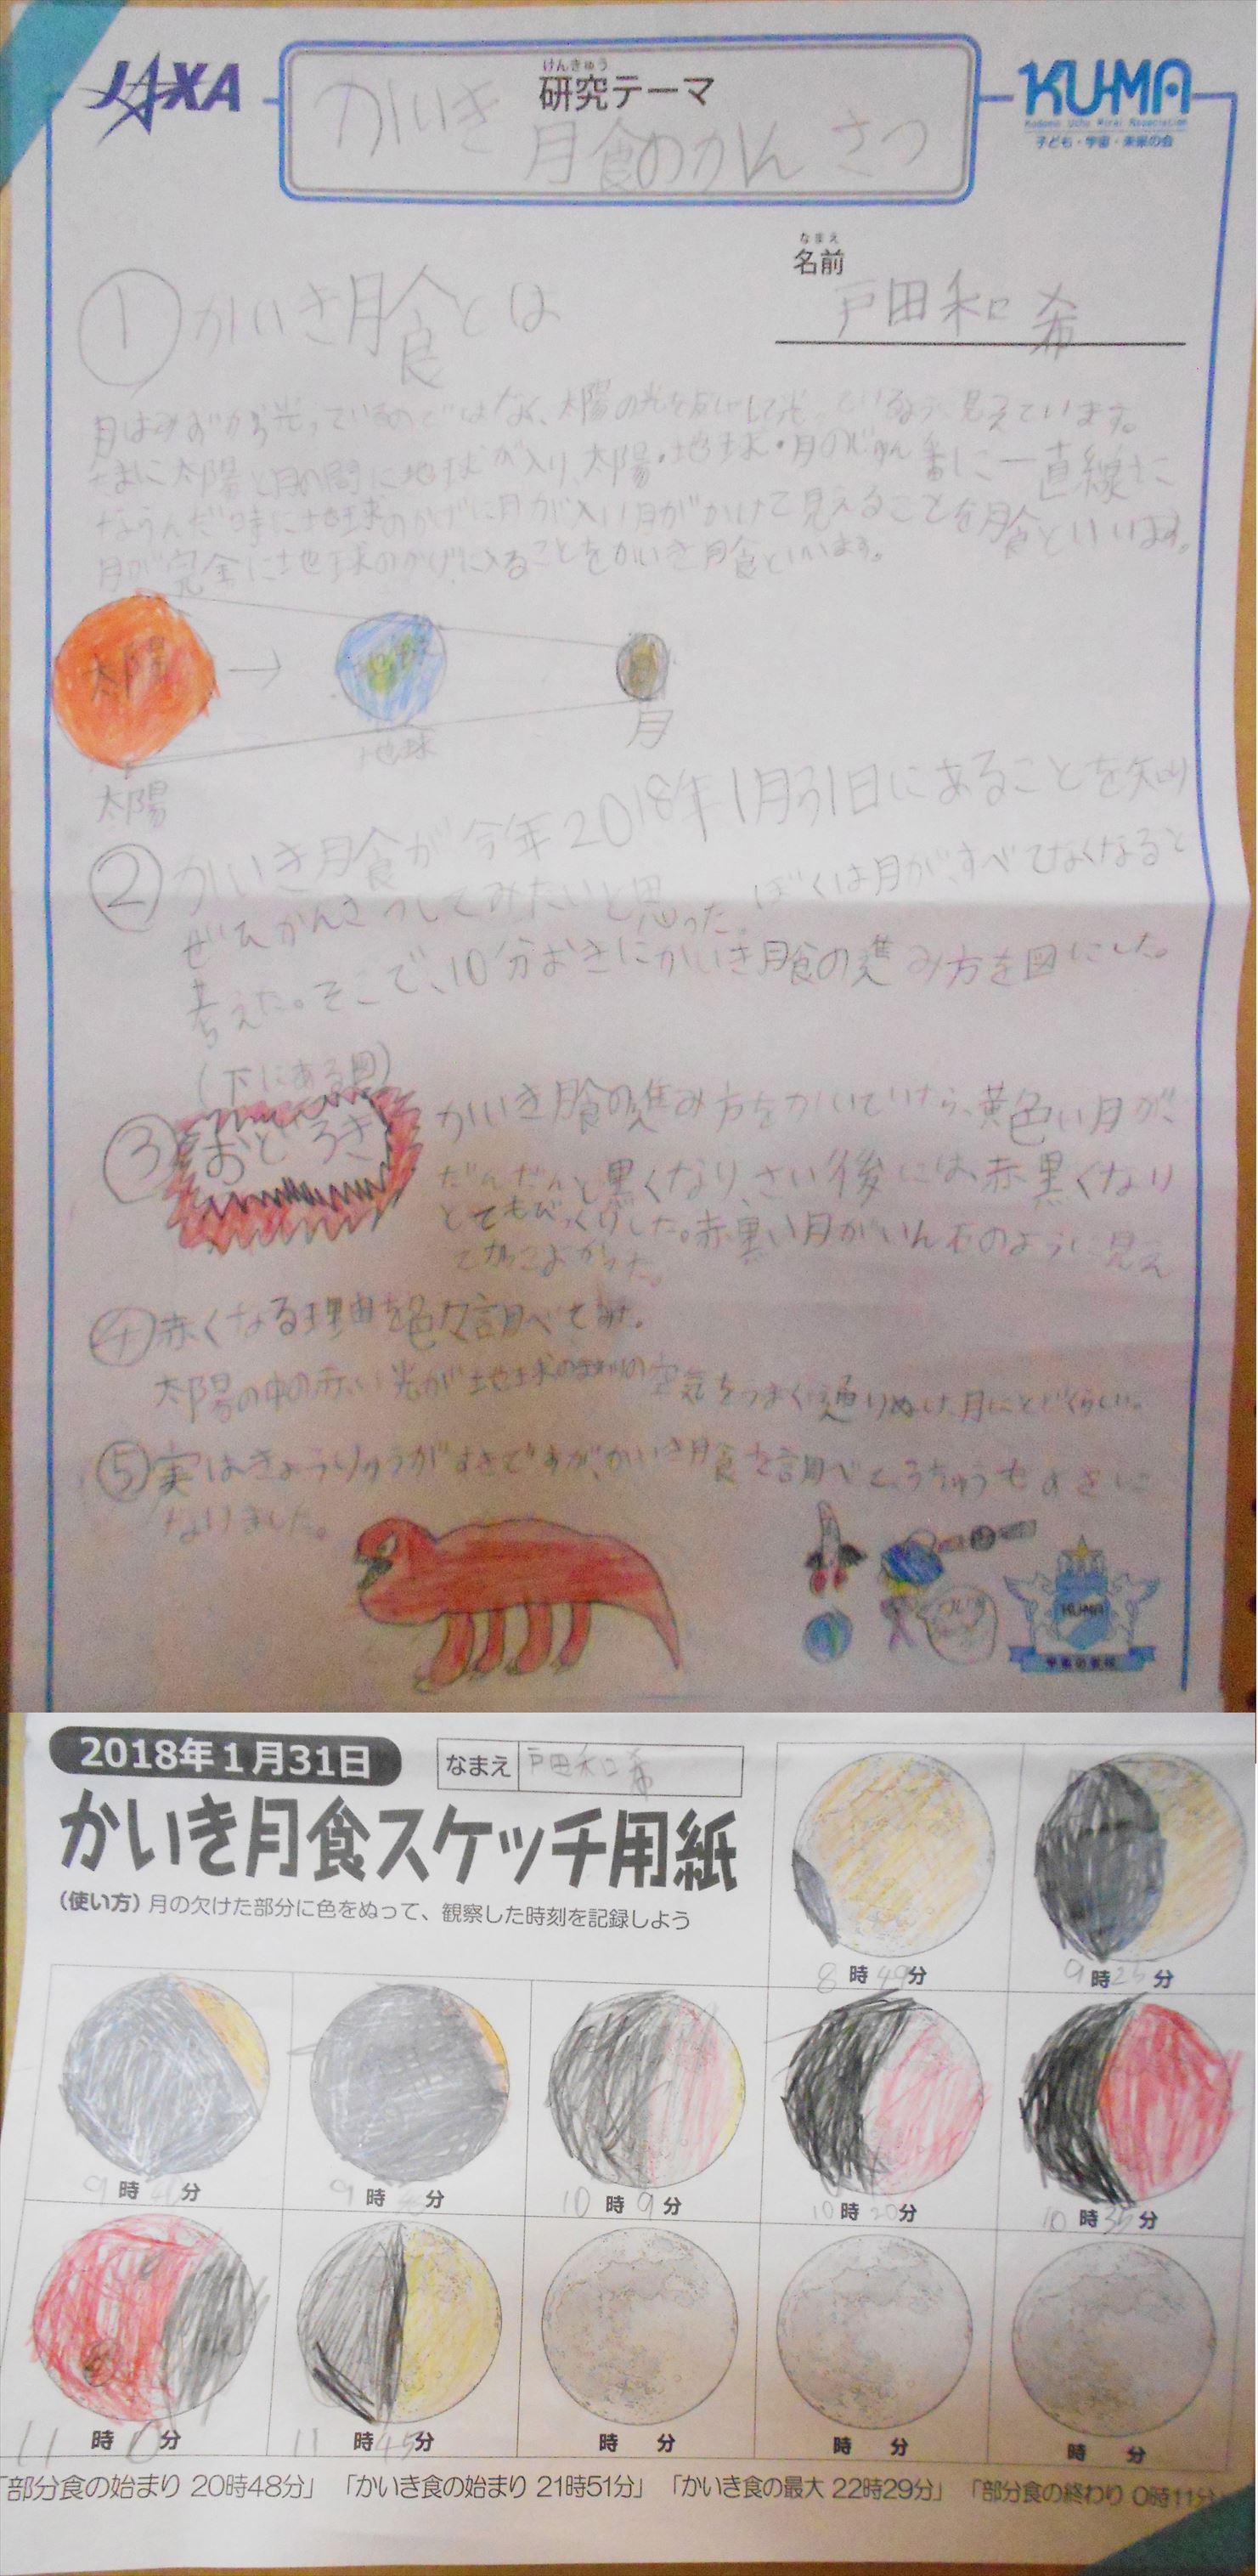 JAXA
けんきゅう
研究テーマ
かいき
月食のかんさつ
KU-MA
Kodomo Uchu Mirai Association
子ども・宇宙・未来の会
なまえ
名前
戸田和希
①かいき月食とは
月はみずから光っているのではなく、太陽の光を反しゃして光っているように見えています。
たまに太陽と月の間に地球が入り、太陽・地球・月のじゅん番に一直線に
ならんだ時に地球のかげに月が入り月がかけて見えることを月食といいます。
月が完全に地球のかげに入ることをかいき月食といいます。
太陽
地球
月
地球
太陽
②かいき月食が今年2018年1月31日にあることを知り
ぜひかんさつしてみたいと思った。ぼくは月が、すべてなくなると
考えた。そこで、10分おきにかいき月食の進み方を図にした。
(下にある図)
③おどろき
かいき月食の進み方をかいていたら、黄色い月が、
だんだんと黒くなり、さい後には、赤黒くなり
とてもびっくりした。赤黒い月がいん石のように見え
てかっこよかった。
④赤くなる理由を色々調べてみた。
太陽の中の赤い光が地球のまわりの空気をうまく通りぬけ、月にとどくらしい。
⑤実はきょうりゅうがすきですが、かいき月食を調べて、うちゅうもすきに
なりました。
KUMA
宇宙の学校
2018年1月31日
なまえ 戸田和希
かいき月食スケッチ用紙
(使い方) 月の欠けた部分に色をぬって、観察した時刻を記録しよう
8時49分
9時25分
9時 分
9時 分
10時9分
10時20分
10時35分
11時0分
11時45分
時 分
時 分
時 分
「部分食の始まり 20時48分」 「かいき食の始まり 21時51分」 「かいき食の最大 22時29分」 「部分食の終わり 0時11分」